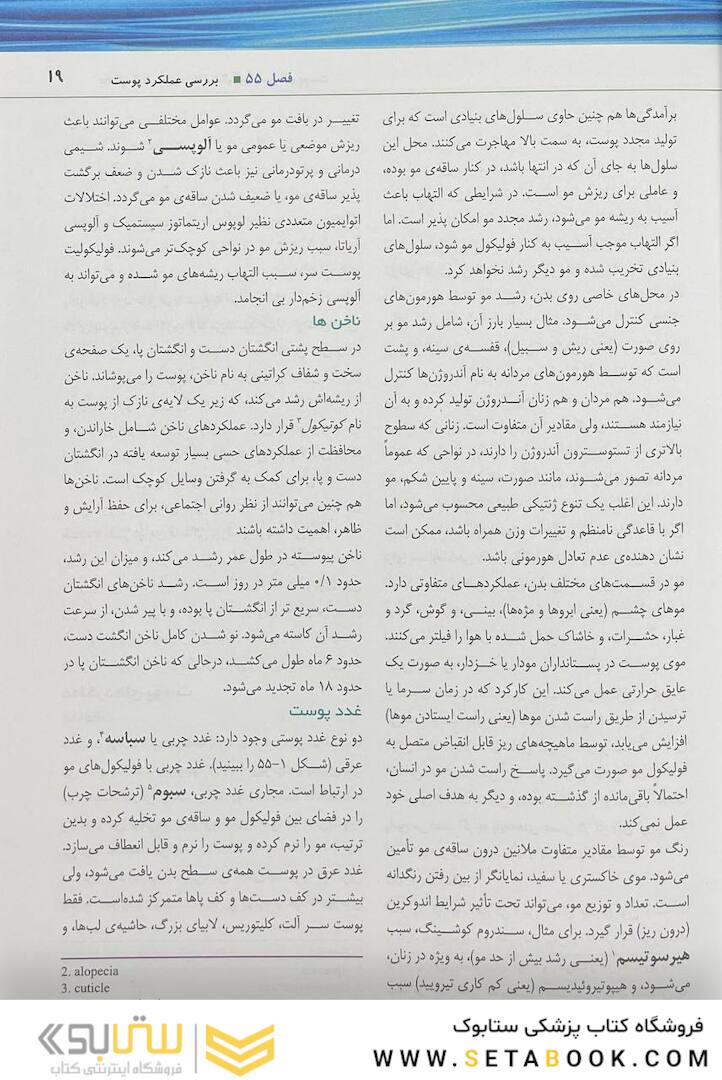 فصل ۵۵ ■ بررسی عملکرد پوست ۱۹
برآمدگی‌ها هم چنین حاوی سلول‌های بنیادی است که برای
تولید مجدد پوست، به سمت بالا مهاجرت می‌کنند. محل این
سلول‌ها به جای آن که در انتها باشد، در کنار ساقه‌ی مو بوده،
و عاملی برای ریزش مو است. در شرایطی که التهاب باعث
آسیب به ریشه مو می‌شود، رشد مجدد مو امکان پذیر است. اما
اگر التهاب موجب آسیب به کنار فولیکول مو شود، سلول‌های
بنیادی تخریب شده و مو دیگر رشد نخواهد کرد.
در محل‌های خاصی روی بدن، رشد مو توسط هورمون‌های
جنسی کنترل می‌شود. مثال بسیار بارز آن، شامل رشد مو بر
روی صورت (یعنی ریش و سبیل)، قفسه‌ی سینه، و پشت
است که توسط هورمون‌های مردانه به نام آندروژن‌ها کنترل
می‌شود. هم مردان و هم زنان آندروژن تولید کرده و به آن
نیازمند هستند، ولی مقادیر آن متفاوت است. زنانی که سطوح
بالاتری از تستوسترون آندروژن را دارند، در نواحی که عموماً
مردانه تصور می‌شوند، مانند صورت، سینه و پایین شکم، مو
دارند. این اغلب یک تنوع ژنتیکی طبیعی محسوب می‌شود، اما
اگر با قاعدگی نامنظم و تغییرات وزن همراه باشد، ممکن است
نشان دهنده‌ی عدم تعادل هورمونی باشد.
مو در قسمت‌های مختلف بدن، عملکردهای متفاوتی دارد.
موهای چشم (یعنی ابروها و مژه‌ها)، بینی، و گوش، گرد و
غبار، حشرات، و خاشاک حمل شده با هوا را فیلتر می‌کنند.
موی پوست در پستانداران مودار یا خزدار، به صورت یک
عایق حرارتی عمل می‌کند. این کارکرد که در زمان سرما یا
ترسیدن از طریق راست شدن موها (یعنی راست ایستادن موها)
افزایش می‌یابد، توسط ماهیچه‌های ریز قابل انقباض متصل به
فولیکول مو صورت می‌گیرد. پاسخ راست شدن مو در انسان،
احتمالاً باقی‌مانده از گذشته بوده، و دیگر به هدف اصلی خود
عمل نمی‌کند.
رنگ مو توسط مقادیر متفاوت ملانین درون ساقه‌ی مو تأمین
می‌شود. موی خاکستری یا سفید، نمایانگر از بین رفتن رنگدانه
است. تعداد و توزیع مو، می‌تواند تحت تأثیر شرایط اندوکرین
(درون ریز) قرار گیرد. برای مثال، سندروم کوشینگ، سبب
هیرسوتیسم۱ (یعنی رشد بیش از حد مو)، به ویژه در زنان،
می‌شود، و هیپوتیروئیدیسم (یعنی کم کاری تیرویید) سبب
تغییر در بافت مو می‌گردد. عوامل مختلفی می‌توانند باعث
ریزش موضعی یا عمومی مو یا آلوپسی۲ شوند. شیمی
درمانی و پرتودرمانی نیز باعث نازک شدن و ضعف برگشت
پذیر ساقه‌ی مو، یا ضعیف شدن ساقه‌ی مو می‌گردد. اختلالات
اتوایمیون متعددی نظیر لوپوس اریتماتوز سیستمیک و آلوپسی
آریاتا، سبب ریزش مو در نواحی کوچک‌تر می‌شوند. فولیکولیت
پوست سر، سبب التهاب ریشه‌های مو شده و می‌تواند به
آلوپسی زخم‌دار بی انجامد.
ناخن ها
در سطح پشتی انگشتان دست و انگشتان پا، یک صفحه‌ی
سخت و شفاف کراتینی به نام ناخن، پوست را می‌پوشاند. ناخن
از ریشه‌اش رشد می‌کند، که زیر یک لایه‌ی نازک از پوست به
نام کوتیکول۳ قرار دارد. عملکردهای ناخن شامل خاراندن، و
محافظت از عملکردهای حسی بسیار توسعه یافته در انگشتان
دست و پا، برای کمک به گرفتن وسایل کوچک است. ناخن‌ها
هم چنین می‌توانند از نظر روانی اجتماعی، برای حفظ آرایش و
ظاهر، اهمیت داشته باشند
ناخن پیوسته در طول عمر رشد می‌کند، و میزان این رشد،
حدود ۰/۱ میلی متر در روز است. رشد ناخن‌های انگشتان
دست، سریع تر از انگشتان پا بوده، و با پیر شدن، از سرعت
رشد آن کاسته می‌شود. نو شدن کامل ناخن انگشت دست،
حدود ۶ ماه طول می‌کشد، درحالی که ناخن انگشتان پا در
حدود ۱۸ ماه تجدید می‌شود.
غدد پوست
دو نوع غدد پوستی وجود دارد: غدد چربی یا سباسه۴، و غدد
عرقی (شکل ۱-۵۵ را ببینید). غدد چربی با فولیکول‌های مو
در ارتباط است. مجاری غدد چربی، سبوم۵ (ترشحات چرب)
را در فضای بین فولیکول مو و ساقه‌ی مو تخلیه کرده و بدین
ترتیب، مو را نرم کرده و پوست را نرم و قابل انعطاف می‌سازد.
غدد عرق در پوست همه‌ی سطح بدن یافت می‌شود، ولی
بیشتر در کف دست‌ها و کف پاها متمرکز شده‌است. فقط
پوست سر آلت، کلیتوریس، لابیای بزرگ، حاشیه‌ی لب‌ها، و
2. alopecia
3. cuticle
فروشگاه کتاب پزشکی ستابوک
WWW.SETABOOK.COM
ستابوک
فروشگاه اینترنتی کتاب